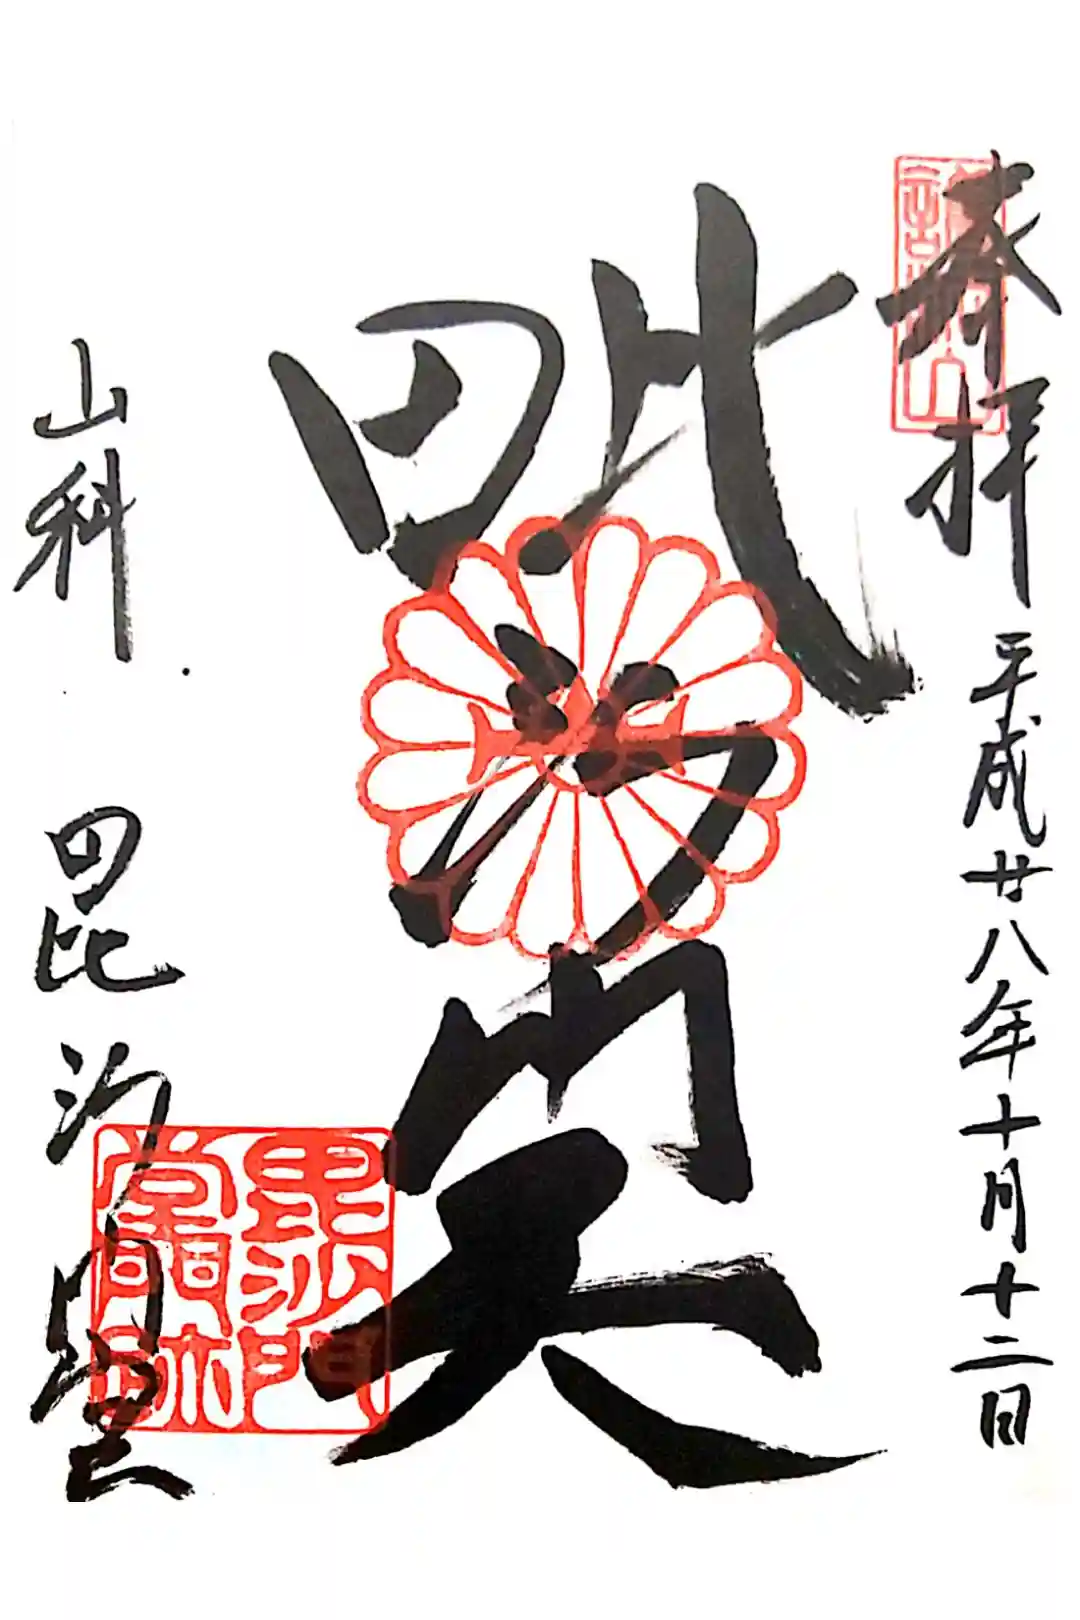 奉拝
平成廿八年十月十二日
毗沙門天
山科 毘沙門堂
毘沙門
堂門跡